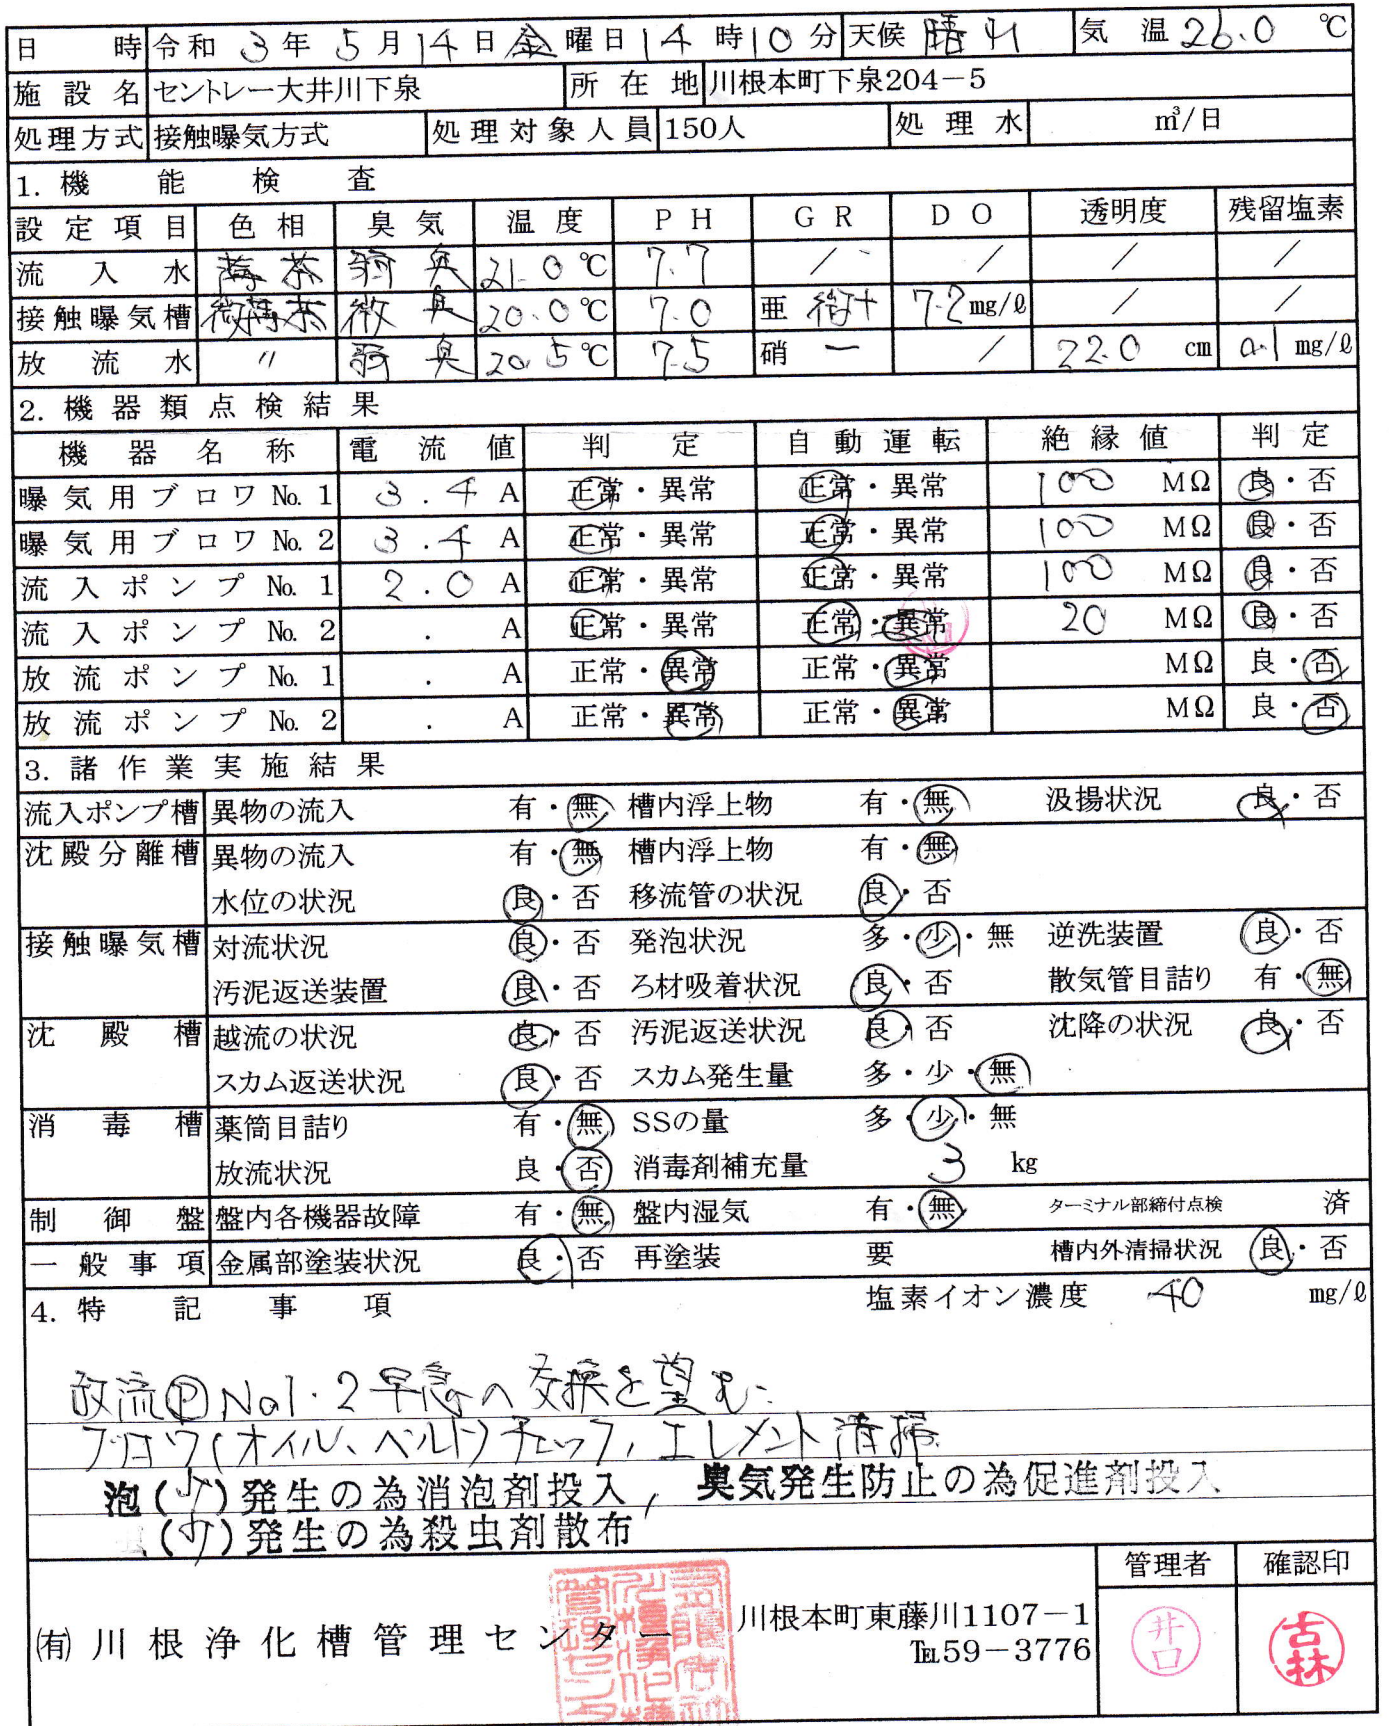 日時 令和 3年 5月 14日 金曜日 14時 10分 天候 晴れ 気温 26.0 ℃
施設名 セントレー大井川下泉 所在地 川根本町下泉204－5
処理方式 接触曝気方式 処理対象人員 150人 処理水 ㎥/日
1. 機能検査
設定項目 色相 臭気 温度 PH GR DO 透明度 残留塩素
流入水 薄茶 弱臭 21.0℃ 7.7 / / / /
接触曝気槽 微薄茶 微臭 20.0℃ 7.0 亜 微+ 7.2mg/ℓ / /
放流水 〃 弱臭 20.5℃ 7.5 硝 － / 22.0 cm 0.1 mg/ℓ
2. 機器類点検結果
機器名称 電流値 判定 自動運転 絶縁値 判定
曝気用ブロワ No. 1 3.4 A 正常・異常 正常・異常 100 MΩ 良・否
曝気用ブロワ No. 2 3.4 A 正常・異常 正常・異常 100 MΩ 良・否
流入ポンプ No. 1 2.0 A 正常・異常 正常・異常 100 MΩ 良・否
流入ポンプ No. 2 . A 正常・異常 正常・異常 20 MΩ 良・否
放流ポンプ No. 1 . A 正常・異常 正常・異常 MΩ 良・否
放流ポンプ No. 2 . A 正常・異常 正常・異常 MΩ 良・否
3. 諸作業実施結果
流入ポンプ槽 異物の流入 有・無 槽内浮上物 有・無 汲揚状況 良・否
沈殿分離槽 異物の流入 有・無 槽内浮上物 有・無
水位の状況 良・否 移流管の状況 良・否
接触曝気槽 対流状況 良・否 発泡状況 多・少・無 逆洗装置 良・否
汚泥返送装置 良・否 ろ材吸着状況 良・否 散気管目詰り 有・無
沈殿槽 越流の状況 良・否 汚泥返送状況 良・否 沈降の状況 良・否
スカム返送状況 良・否 スカム発生量 多・少・無
消毒槽 薬筒目詰り 有・無 SSの量 多・少・無
放流状況 良・否 消毒剤補充量 3 kg
制御盤 盤内各機器故障 有・無 盤内湿気 有・無 ターミナル部締付点検 済
一般事項 金属部塗装状況 良・否 再塗装 要 槽内外清掃状況 良・否
4. 特記事項 塩素イオン濃度 40 mg/ℓ
放流Ⓟ No1・2 早急の交換を望む.
ブロワ(オイル、ベルト)チェック, エレメント清掃
泡(少)発生の為消泡剤投入, 臭気発生防止の為促進剤投入
(少)発生の為殺虫剤散布
管理者 確認印
㈲川根浄化槽管理センター 川根本町東藤川1107－1
℡59－3776
井口 古林